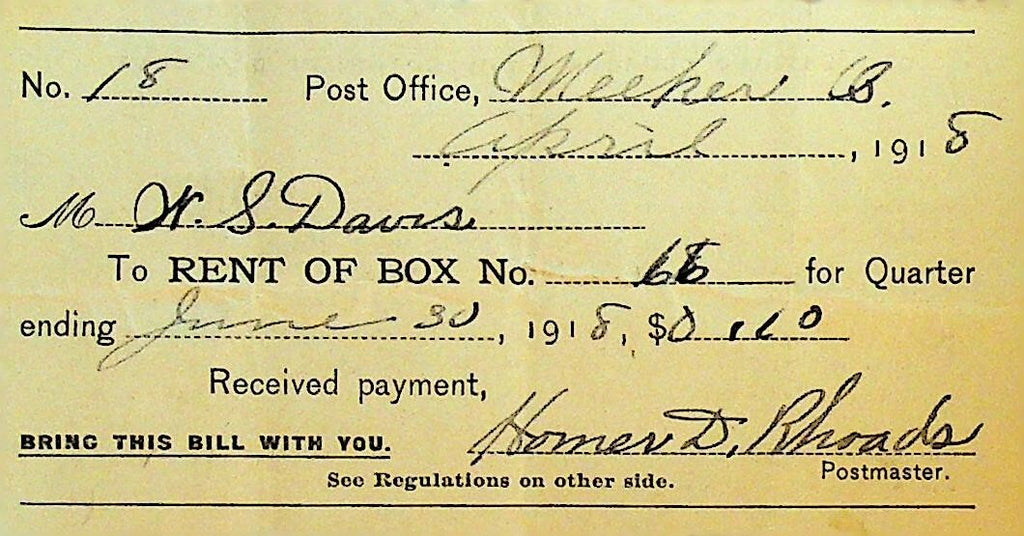 No. 18 Post Office, Meeker
April, 1918
M W. S. Davis
To RENT OF BOX No. for Quarter
ending June 30, 1918, $0.10
Received payment,
BRING THIS BILL WITH YOU. Homer D. Rhoads
Postmaster.
See Regulations on other side.